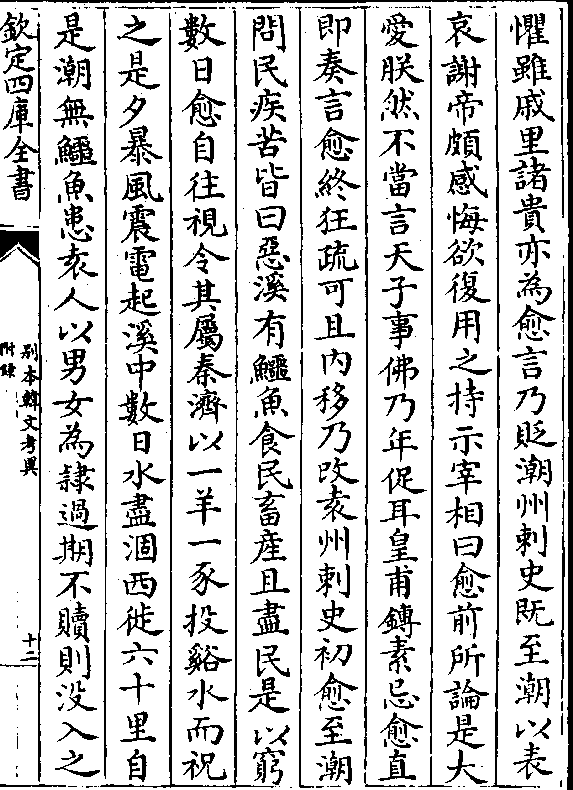 懼雖戚里諸貴亦為愈言乃貶潮州刺史既至潮以表
哀謝帝頗感悔欲復用之持示宰相曰愈前所論是大
愛朕然不當言天子事佛乃年促耳皇甫鎛素忌愈直
即奏言愈終狂疏可且内移乃改袁州刺史初愈至潮
問民疾苦皆曰惡溪有鱷魚食民畜産且盡民是以窮
數日愈自往視令其屬秦濟以一羊一豕投谿水而祝
之是夕暴風震電起溪中數日水盡涸西徙六十里自
是潮無鱷魚患袁人以男女為隷過期不贖則没入之
欽定四庫全書
别本韓文考異
附錄
十二